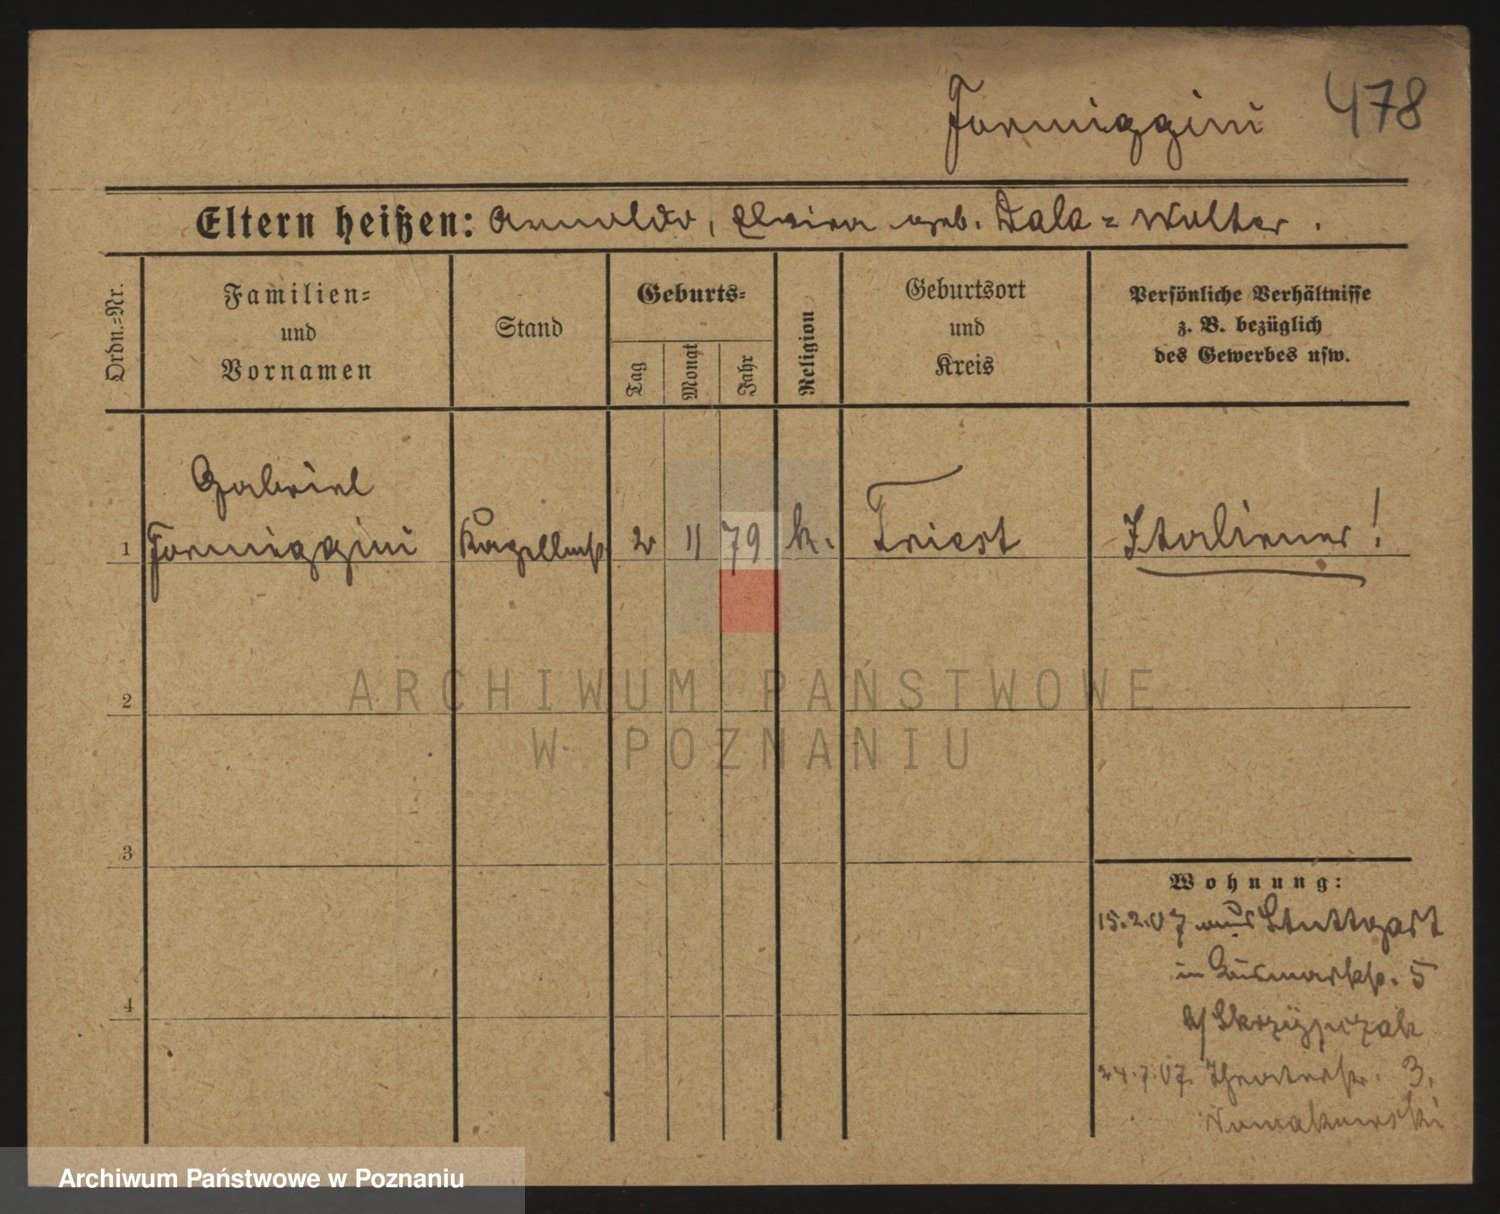 Formiggini 478
Eltern heißen: Arnoldo, Elvira geb. Dala=Wolter.
Ordn.=Nr.
Familien=
und
Vornamen
Stand
Geburts=
Tag
Monat
Jahr
Religion
Geburtsort
und
Kreis
Persönliche Verhältnisse
z. B. bezüglich
des Gewerbes usw.
Gabriel
1 Formiggini 2 11 79 k. Triest Italiener!
2
3
4
Wohnung:
15.2.07 aus Stuttgart
in Bismarckstr. 5
b/ Skrzypczak
24.7.07. Theaterstr. 3.
Nowakowski
ARCHIWUM PAŃSTWOWE
W POZNANIU
Archiwum Państwowe w Poznaniu